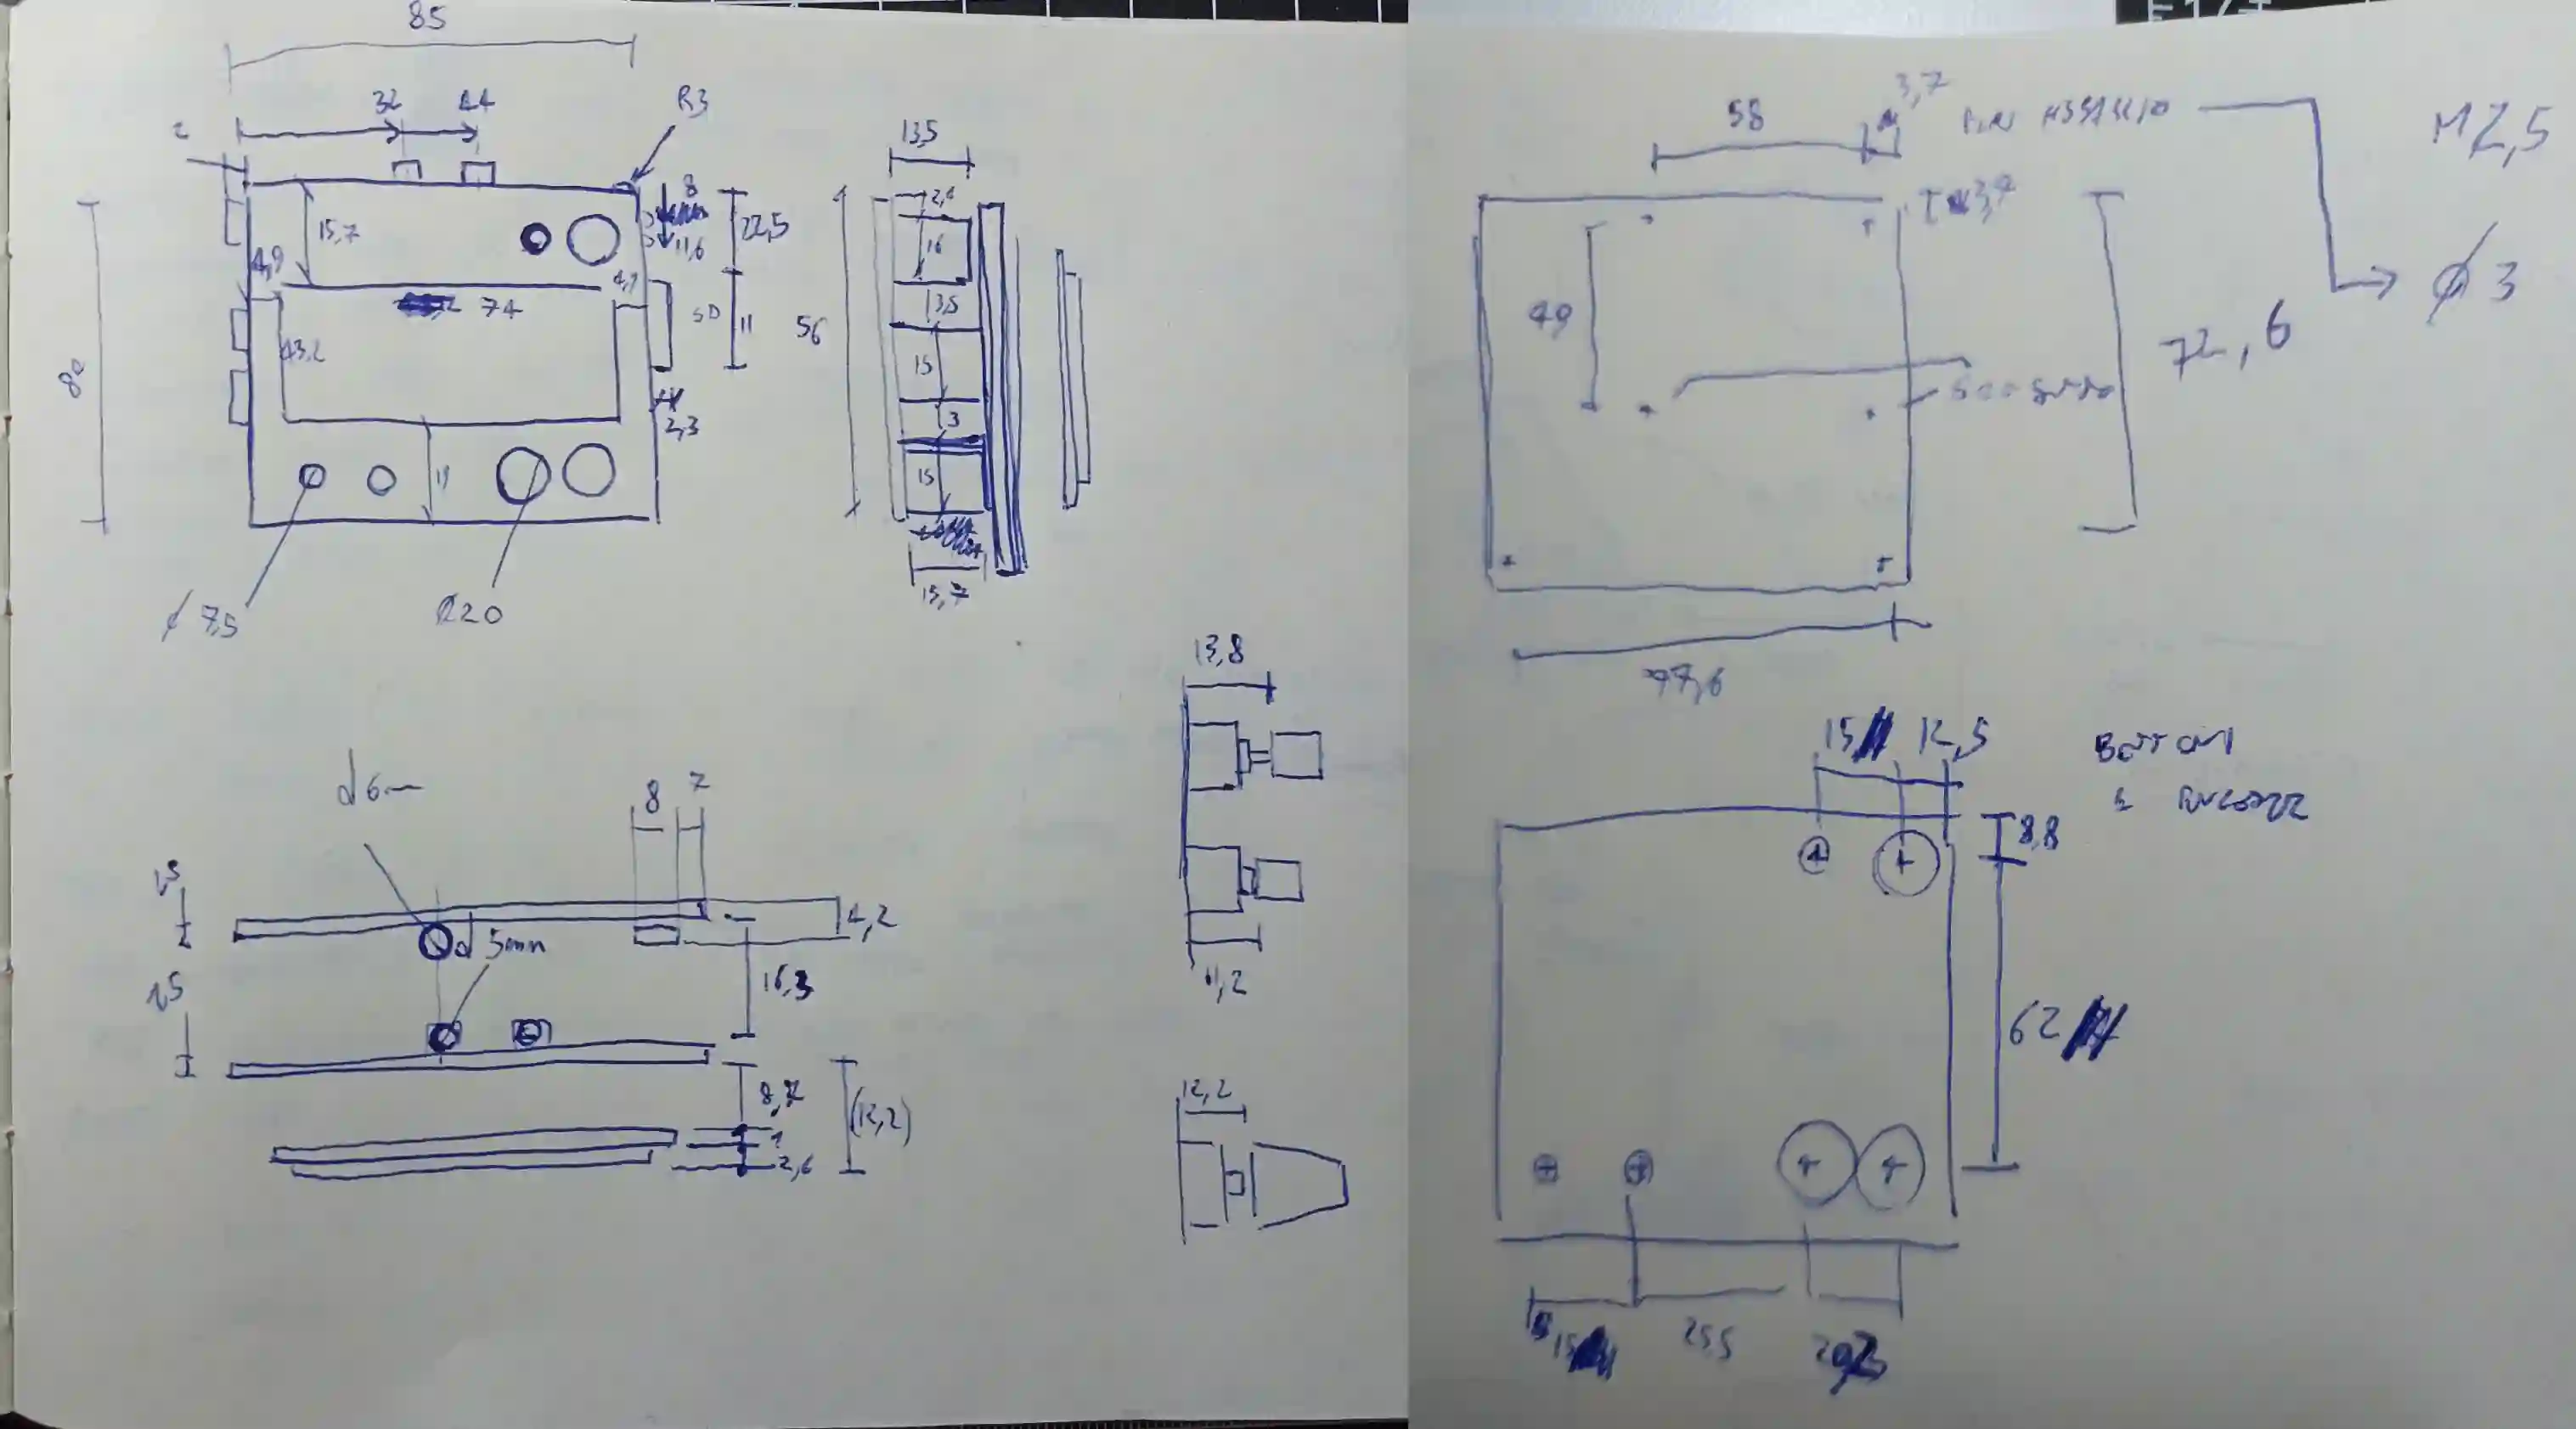 85
32
44
R3
2
8
11,6
22,5
15,7
4,9
74
43,2
80
SD
11
2,3
11
Ø 7,5
R20
13,5
2,4
16
13,5
56
15
3
15
15,7
13,8
11,2
12,2
d 6mm
8
7
1,5
d 5mm
4,2
16,3
1,5
8,7
1
2,6
(12,2)
58
3,7
M2,5
3,7
49
Ø 3
72,6
77,6
15
12,5
BOTTONI
E ENCODER
8,8
62
15
25,5
20,3